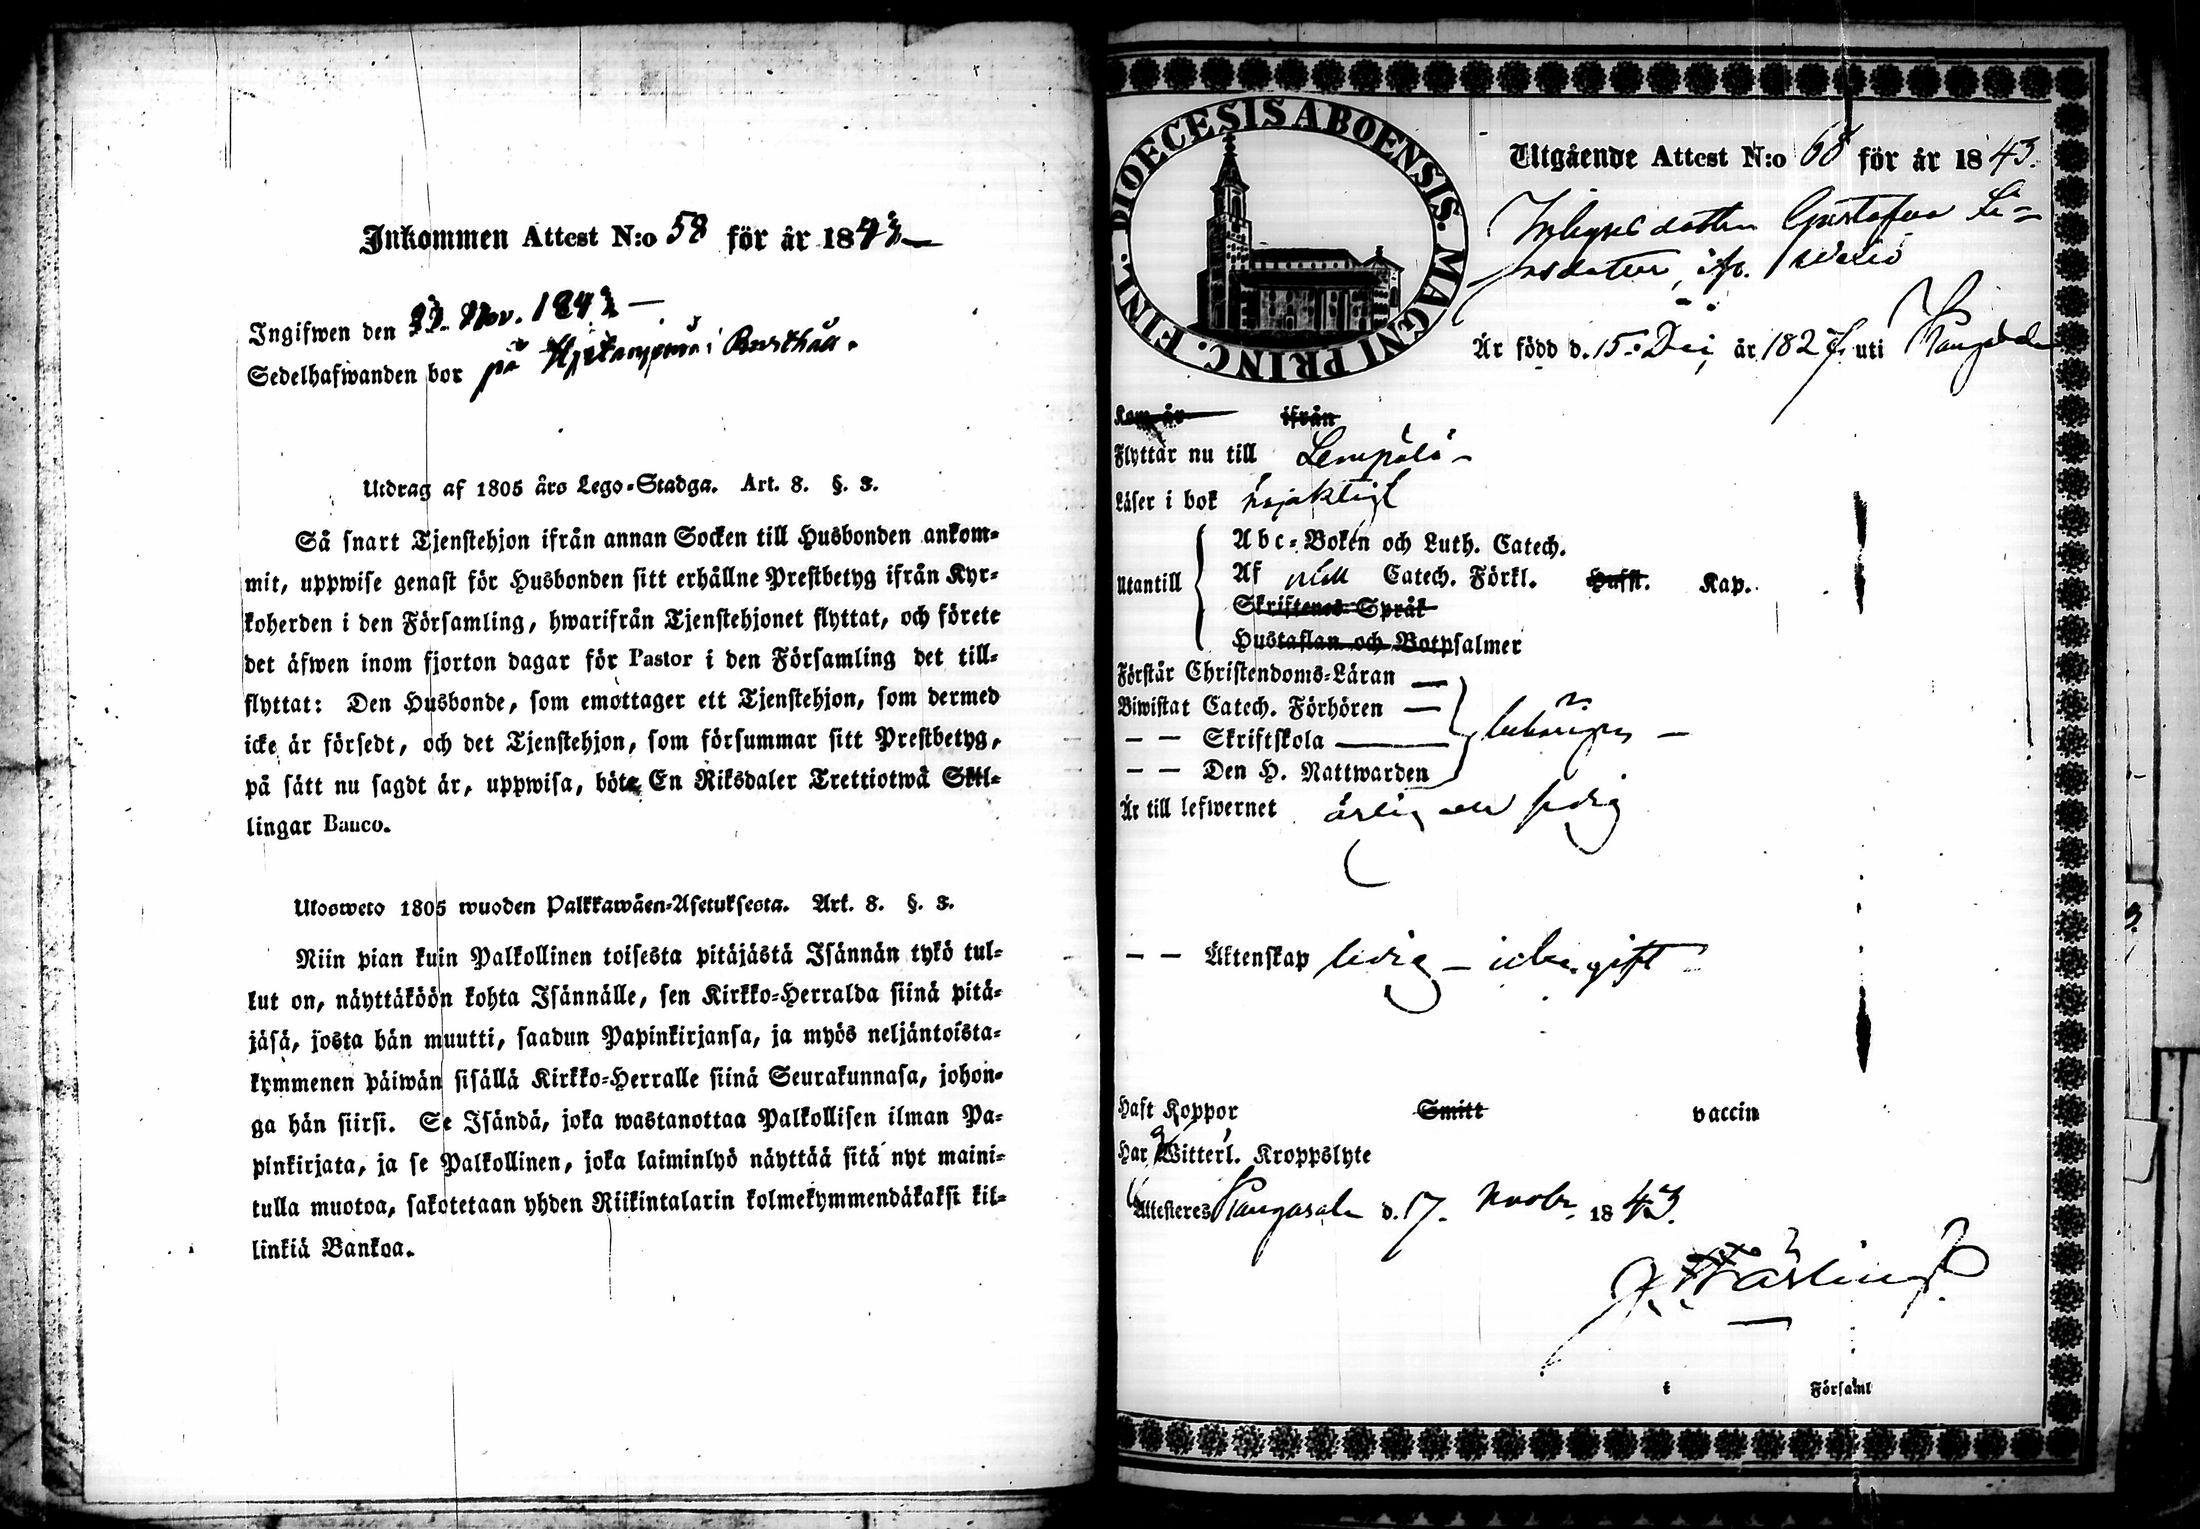 Inkommen Attest N:o 58 för år 1843
Ingifwen den 23. Nov. 1843
Sedelhafwanden bor på i
Utdrag af 1805 års Lego-Stadga. Art. 8. §. 3.
Så snart Tjenstehjon ifrån annan Socken till Husbonden ankom-
mit, uppwise genast för Husbonden sitt erhållne Prestbetyg ifrån Kyr-
koherden i den Församling, hwarifrån Tjenstehjonet flyttat, och förete
det äfwen inom fjorton dagar för Pastor i den Församling det till-
flyttat: Den Husbonde, som emottager ett Tjenstehjon, som dermed
icke är försedt, och det Tjenstehjon, som försummar sitt Prestbetyg,
på sätt nu sagdt är, uppwisa, böte En Riksdaler Trettiotwå Skil-
lingar Banco.
Ulosweto 1805 wuoden Palkkawäen-Asetuksesta. Art. 8. §. 3.
Niin pian kuin Palkollinen toisesta pitäjästä Isännän tykö tul-
lut on, näyttäköön kohta Isännälle, sen Kirkko-Herralda siinä pitä-
jäsä, josta hän muutti, saadun Papinkirjansa, ja myös neljäntoista-
kymmenen päiwän sisällä Kirkko-Herralle siinä Seurakunnasa, johon-
ga hän siirsi. Se Isändä, joka wastanottaa Palkollisen ilman Pa-
pinkirjata, ja se Palkollinen, joka laiminlyö näyttää sitä nyt maini-
tulla muotoa, sakotetaan yhden Riikintalarin kolmekymmendäkaksi kil-
linkiä Bankoa.
DIOECESIS ABOENSIS. MAGNI PRINC. FINL.
Utgående Attest N:o 68 för år 1843.
Inhyses dottren Gustafva
ifr.
Är född d. 15. år 1827. uti Kangasala
Kom år ifrån
Flyttar nu till Lempälä
Läser i bok nöjaktigt
Utantill
Abc-Boken och Luth. Catech.
Af Catech. Förkl. Husst. Kap.
Skriftenes Språk
Hustaflan och Botpsalmer
Förstår Christendoms-Läran
Biwistat Catech. Förhören
— — Skriftskola
— — Den H. Nattwarden
behörigen
Är till lefwernet ärlig och sedig
— — Äktenskap ledig — icke gift
Haft Koppor Smitt vaccin
Har Witterl. Kroppslyte
Attesteras Kangasala d. 17. Novbr. 1843.
i Församl